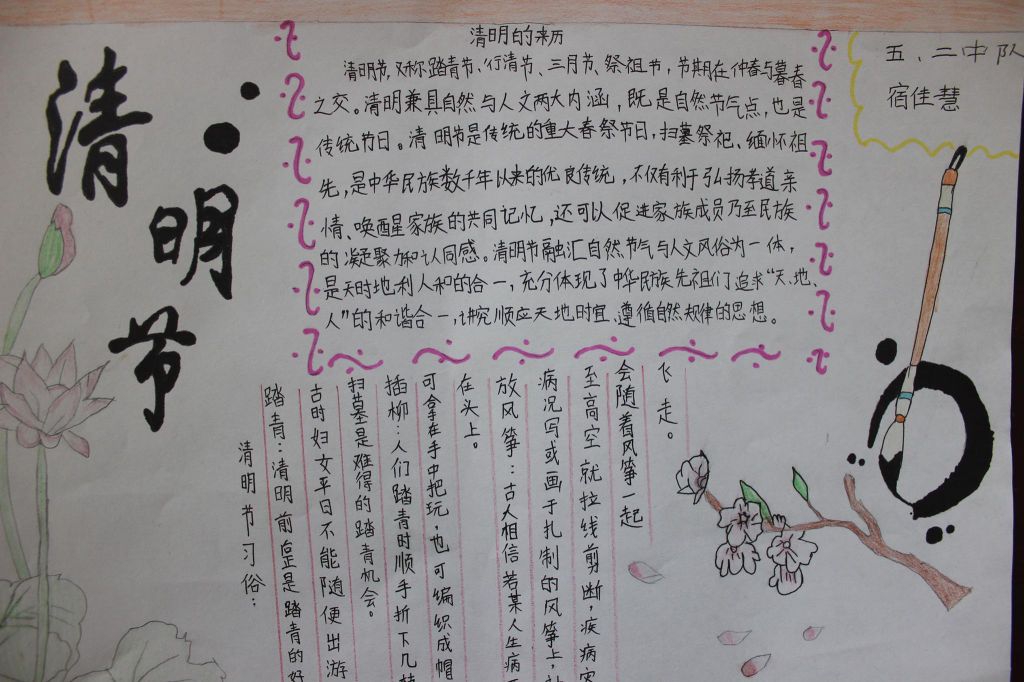 清明节
清明的来历
清明节,又称踏青节、行清节、三月节、祭祖节,节期在仲春与暮春
之交。清明兼具自然与人文两大内涵,既是自然节气点,也是
传统节日。清明节是传统的重大春祭节日,扫墓祭祀、缅怀祖
先,是中华民族数千年以来的优良传统,不仅有利于弘扬孝道亲
情、唤醒家族的共同记忆,还可以促进家族成员乃至民族
的凝聚力和认同感。清明节融汇自然节气与人文风俗为一体,
是天时地利人和的合一,充分体现了中华民族先祖们追求“天、地、
人”的和谐合一,讲究顺应天地时宜、遵循自然规律的思想。
五、二中队
宿佳慧
清明节习俗:
踏青:清明前是踏青的好
古时妇女平日不能随便出游
扫墓是难得的踏青机会。
插柳:人们踏青时顺手折下几
可拿在手中把玩,也可编织成帽
在头上。
放风筝:古人相信若某人生病
病况写或画于扎制的风筝上,
至高空就拉线剪断,疾病灾
会随着风筝一起
飞走。